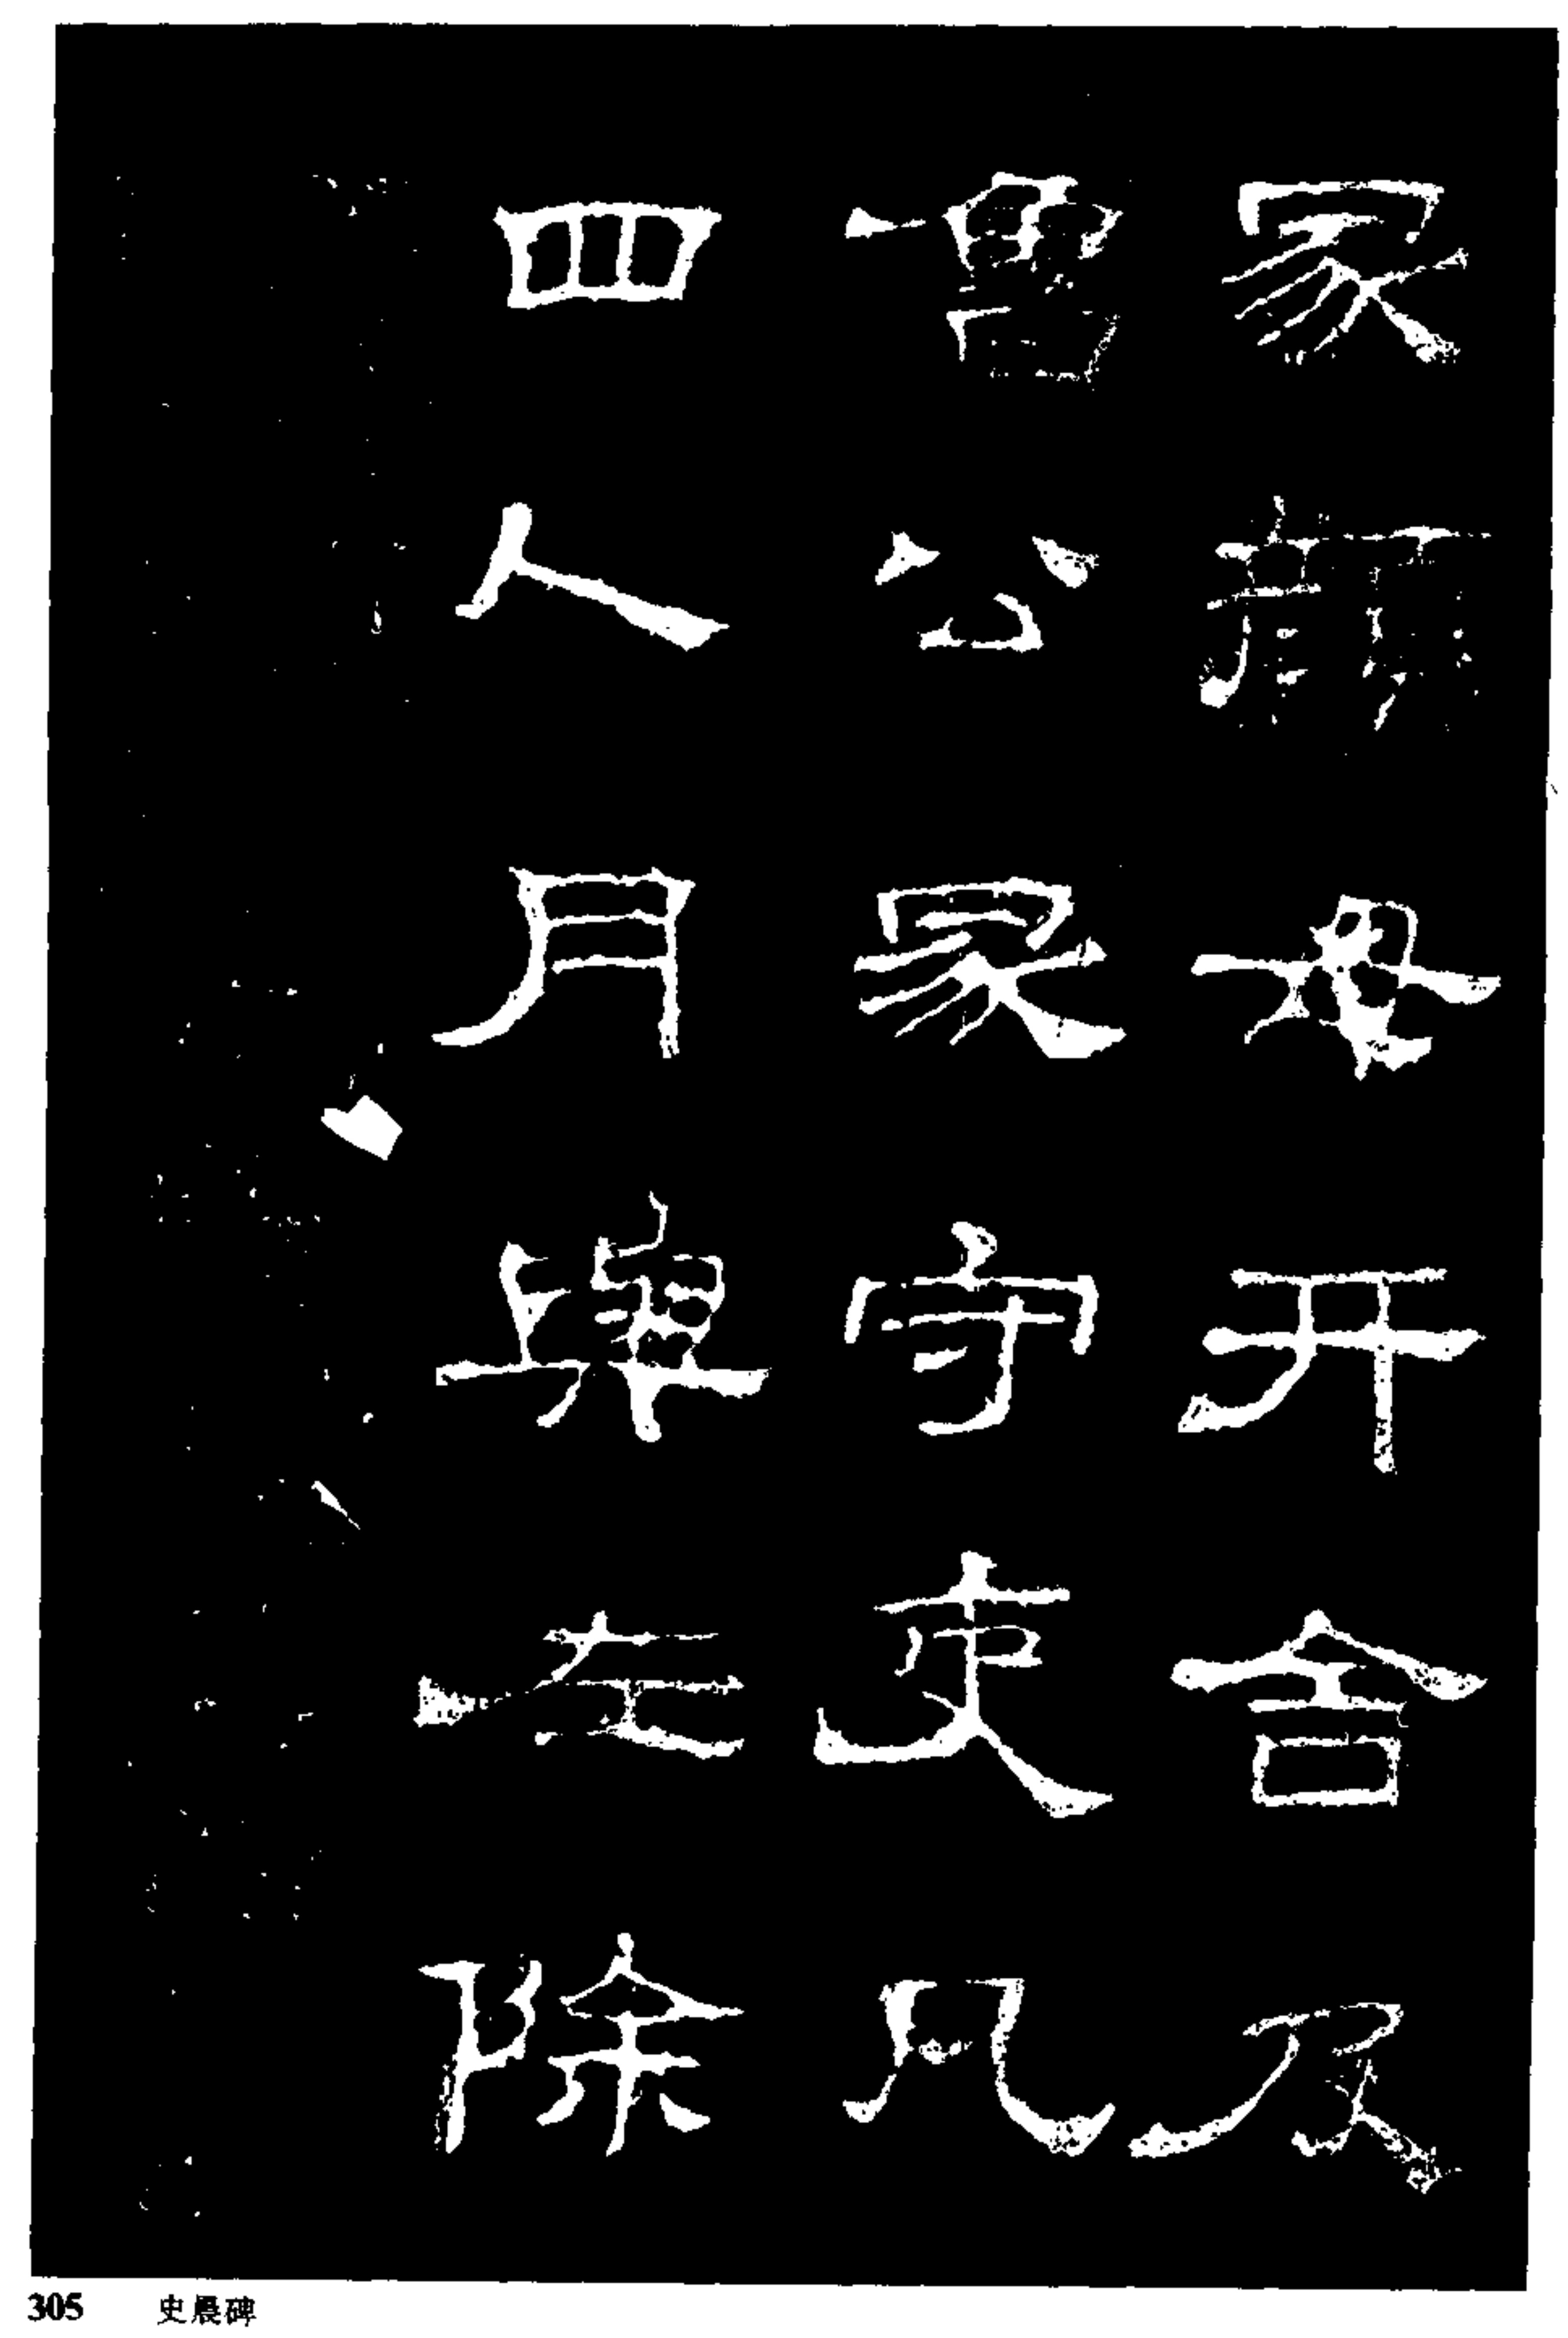 冢顏母开舍及
魯公冢守吏凡
四人月與佐除
305 史晨碑